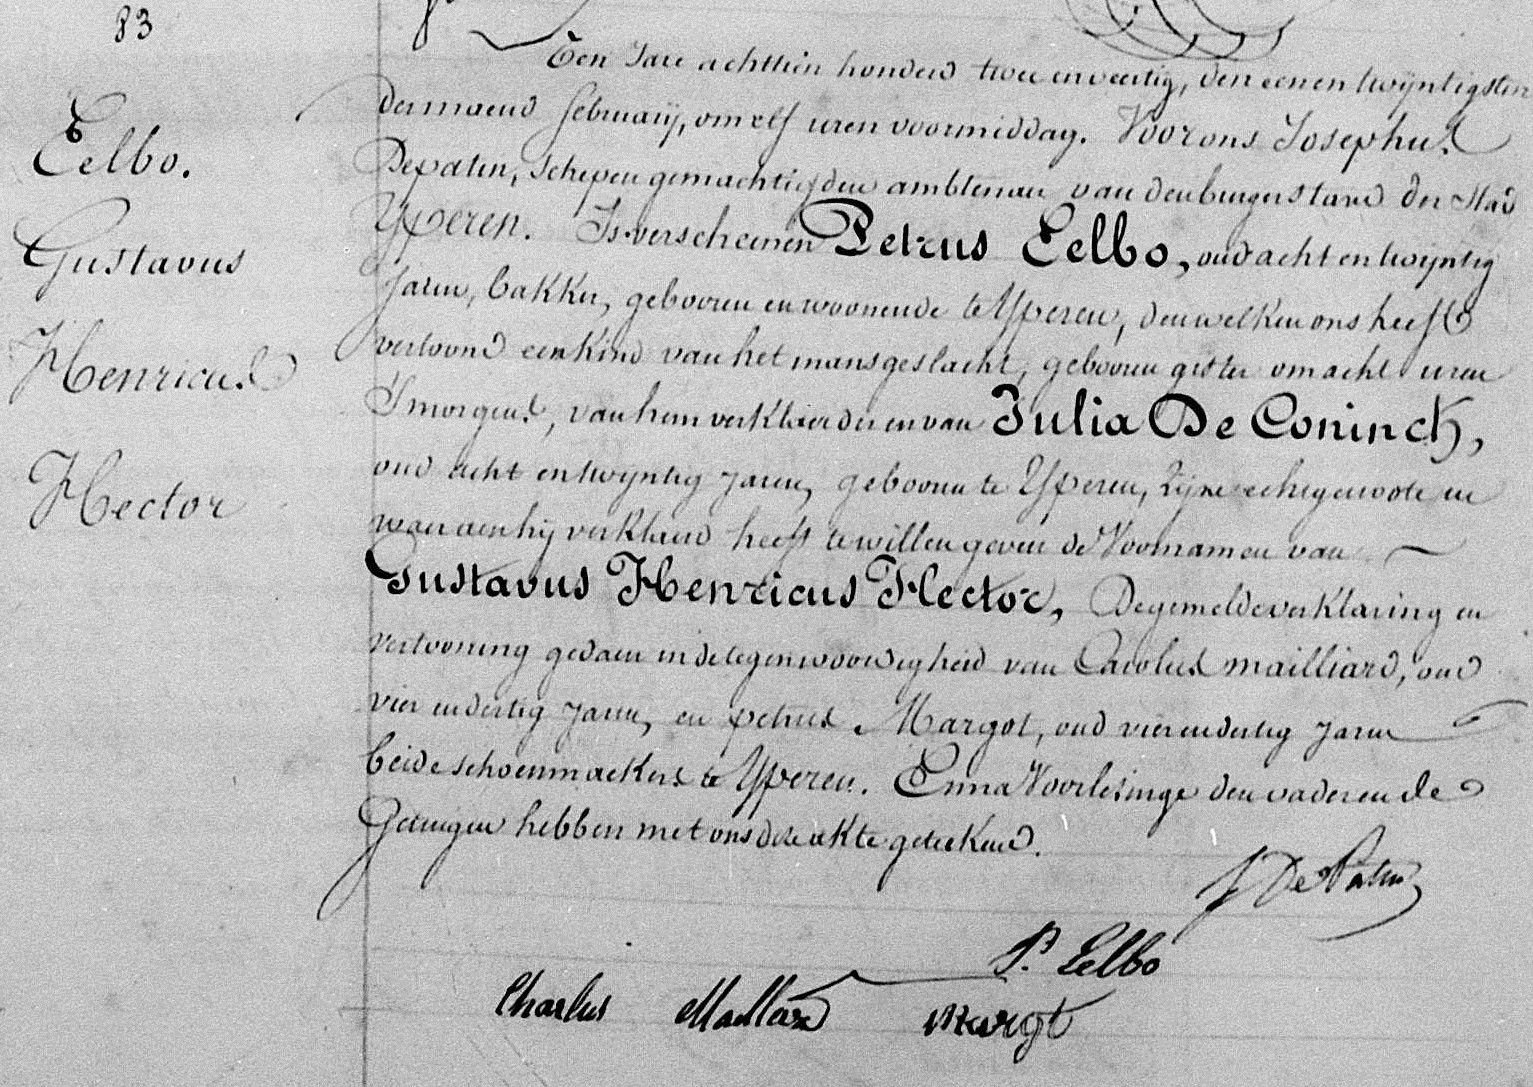 83
Eelbo.
Gustavus
Henricus
Hector
Ten Jare achttien honderd twee en veertig, den eenen twijntigsten
der maend february, om elf uren voormiddag. Voor ons Josephus
Depatin, schepen gemachtigden ambtenaer van den burgerstand der stad
Yperen. Is verscheenen Petrus Eelbo, oud acht en twijntig
Jaren, bakker, gebooren en woonende te Yperen, den welken ons heeft
vertoond een kind van het mansgeslacht, gebooren gister om acht uren
s'morgens, van hem verklaerder en van Julia De Coninck,
oud acht en twijntig Jaren, gebooren te Yperen, zijne echtgenoote en
waer aen hij verklaerd heeft te willen geven de Voornamen van
Gustavus Henricus Hector, De gemelde verklaring en
vertooning gedaen in de tegenwoordigheid van Carolus Mailliard, oud
vier en dertig Jaren, en petrus Margot, oud vier en dertig Jaren
beide schoenmaekers te Yperen. En na Voorlezinge den vader en de
Getuigen hebben met ons deze akte geteekend.
J De Patin
P. Eelbo
Charles Maillard Margot